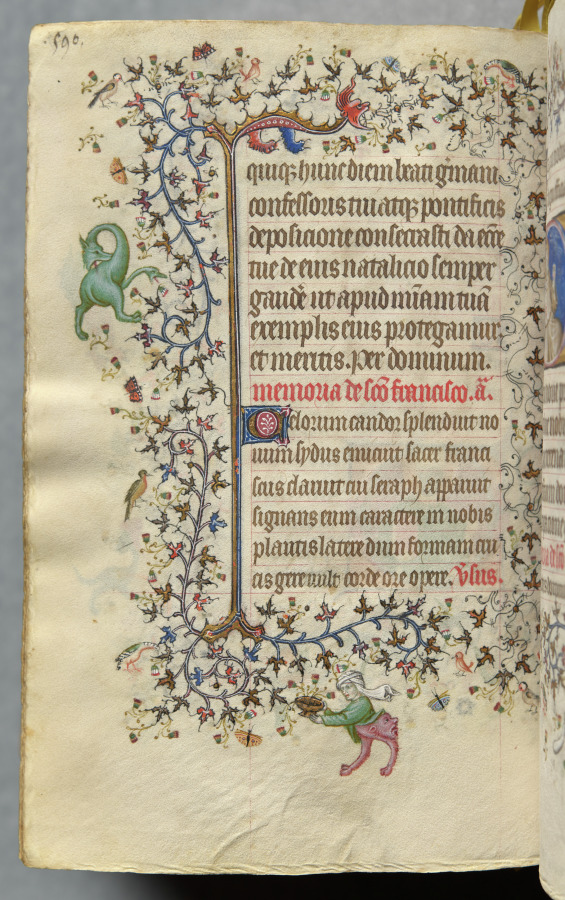 590.
quiq; hunc diem beati g̃mani
confessoris tui atq; pontificis
deposicione consecrasti da ecc̃e
tue de eius natalicio semper
gaudẽ ut apud m̃iam tuã
exemplis eius protegamur
et meritis. Per dominum.
memoria de sc̃o francisco. ã.
Celorum candor splenduit no
uum sydus emicuit sacer franci
scus claruit cui seraph apparuit
signans eum caractere in nobis
plantis latere dum formam cru
cis gere uult corde ore opere. v̾sus.